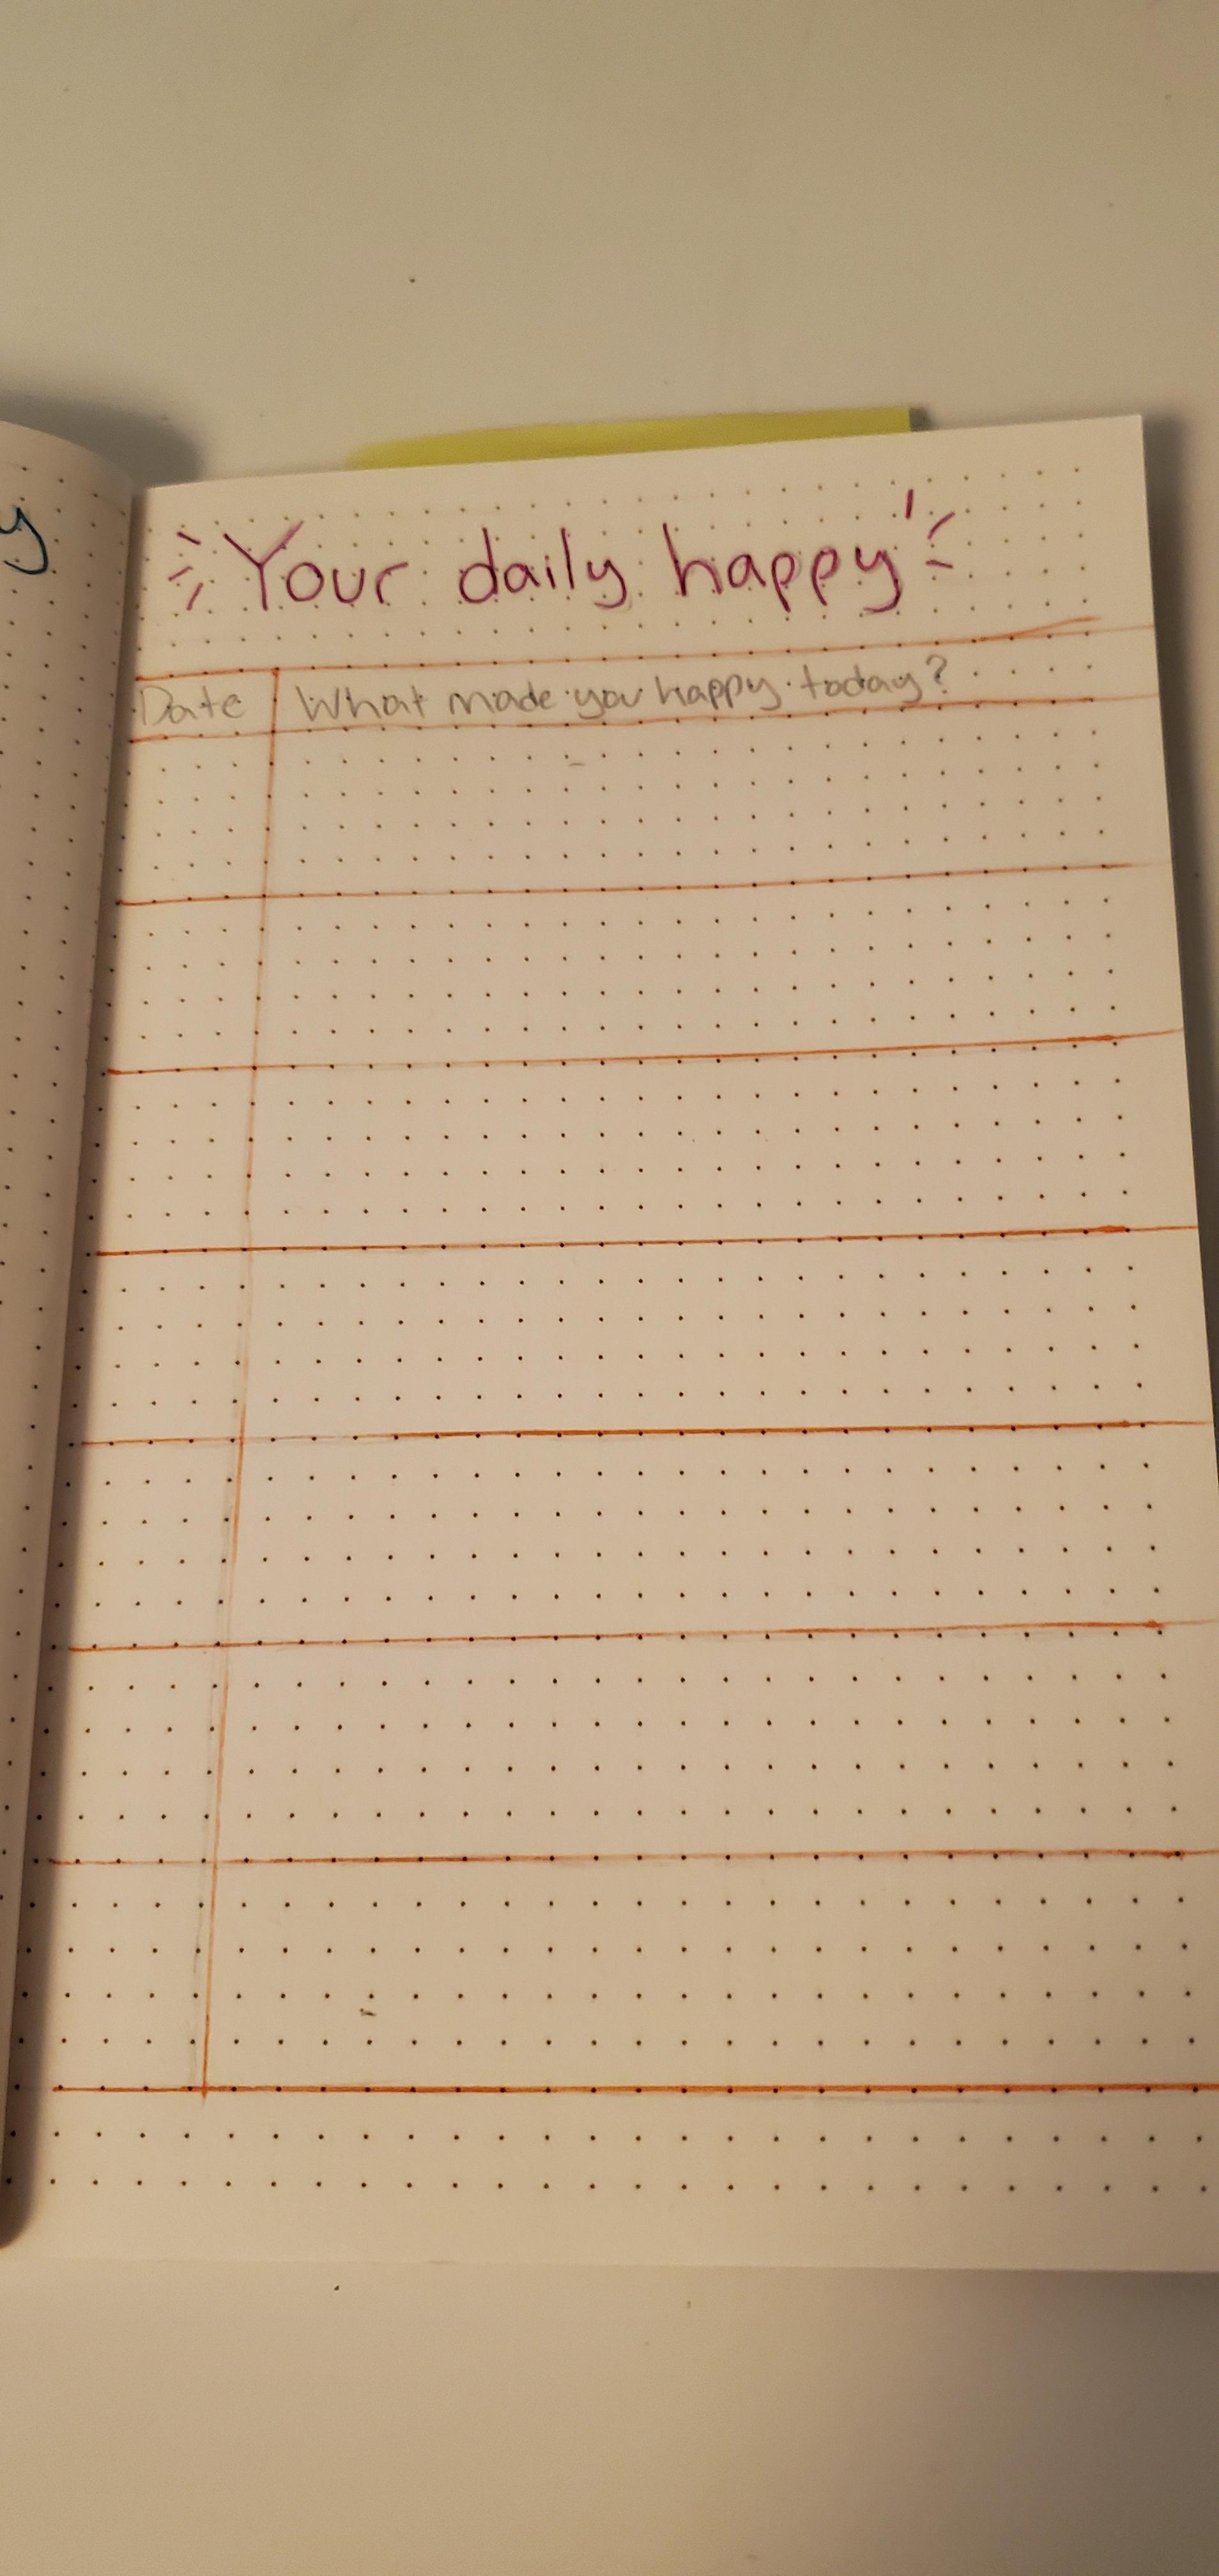 y
Your daily happy
Date What made you happy today?